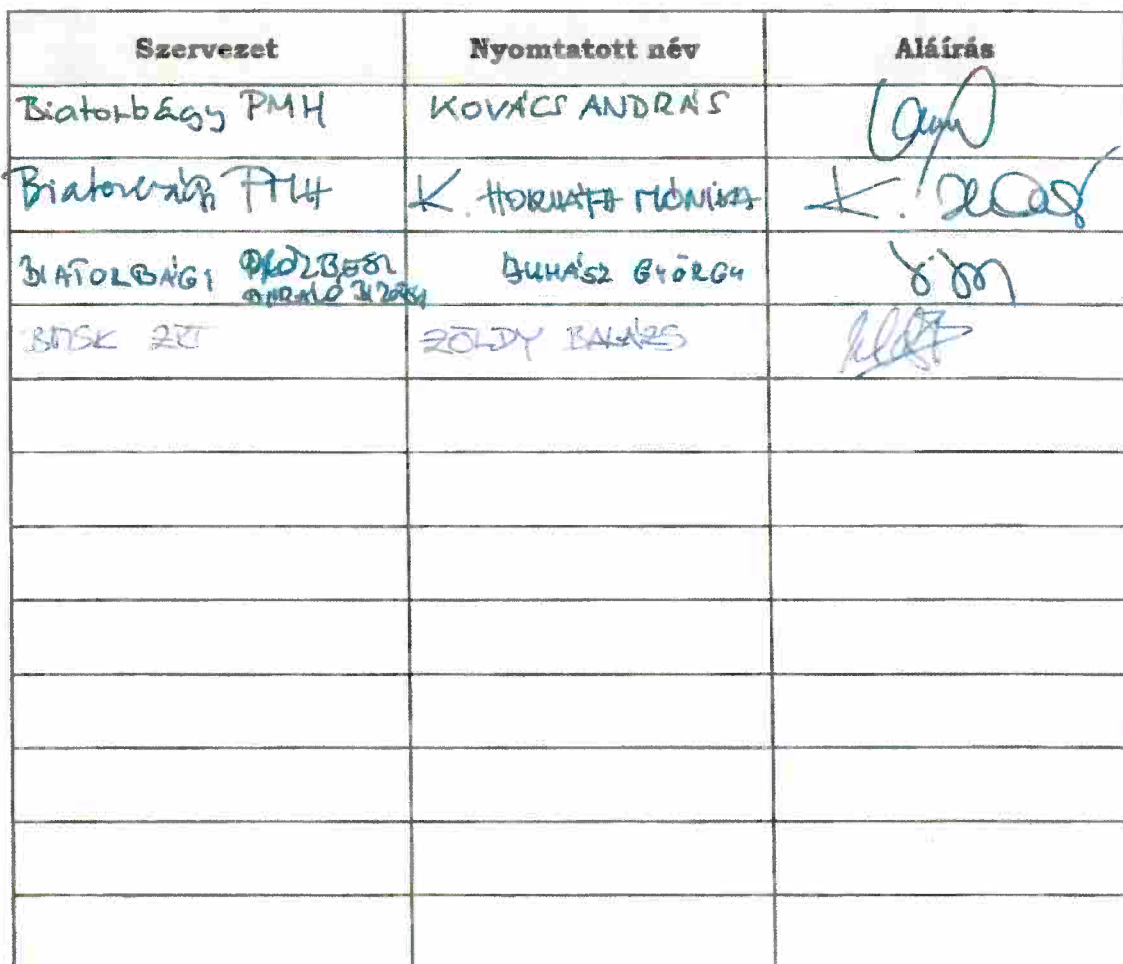 Szervezet Nyomtatott név Aláírás
Biatorbágy PMH KOVÁCS ANDRÁS
Biatorbágy PMH K. HORVÁTH MÓNIKA
BIATORBÁGY JUHÁSZ GYÖRGY
BMSK ZRT ZÖLDY BALÁZS